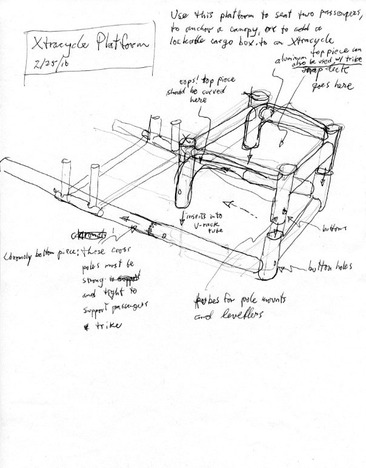 Xtracycle Platform
2/25/10
Use this platform to seat two passengers,
to anchor a canopy, or to add a
lockable cargo box to an Xtracycle
aluminum top piece can
also be used w/ trike
goes here
oops! top piece
should be curved
here
inserts into
V-rack
tube
buttons
button holes
Chromoly bottom piece; these cross
poles must be
strong
and tight to
support passengers
& trike
tubes for pole mounts
and levellers